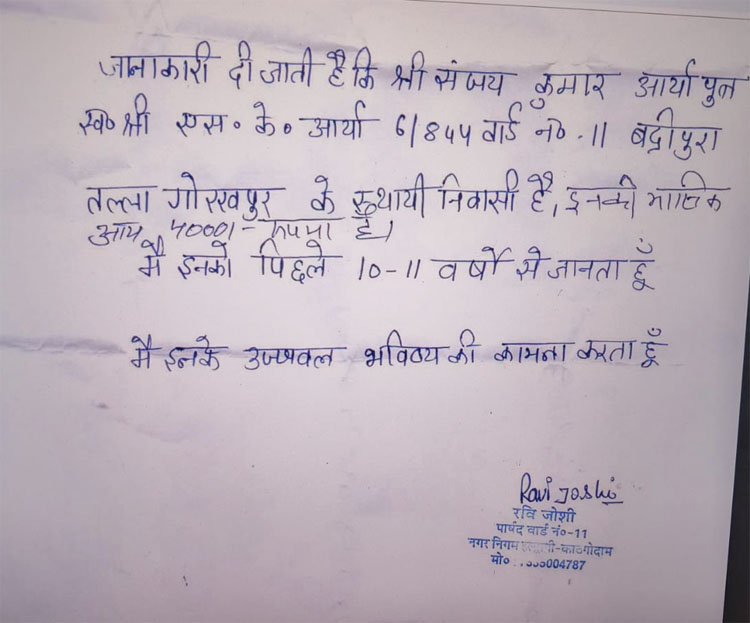 जानाकारी दी जाती है कि श्री संजय कुमार आर्या पुत्र
स्व० श्री एस० के० आर्या 6/844 वार्ड नं० -11 बद्रीपुरा
तल्ला गोरखपुर के स्थायी निवासी है, इनकी मासिक
आय /- रूपया है।
मै इनको पिछले 10-11 वर्षो से जानता हूँ
मै इनके उज्जवल भविष्य की कामना करता हूँ
Ravi Joshi
रवि जोशी
पार्षद वार्ड नं०-11
नगर निगम -काठगोदाम
मो० 004787